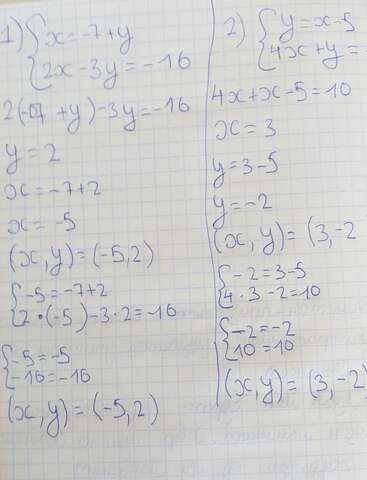 1) {x = -7 + y
{2x - 3y = -16
2(-7 + y) - 3y = -16
y = 2
x = -7 + 2
x = -5
(x, y) = (-5, 2)
{-5 = -7 + 2
{2 * (-5) - 3 * 2 = -16
{-5 = -5
{-16 = -16
(x, y) = (-5, 2)
2) {y = x - 5
{4x + y =
4x + x - 5 = 10
x = 3
y = 3 - 5
y = -2
(x, y) = (3, -2
{-2 = 3 - 5
{4 * 3 - 2 = 10
{-2 = -2
{10 = 10
(x, y) = (3, -2)